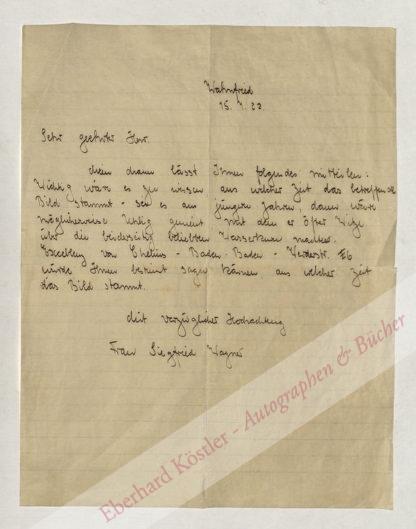 Wahnfried
15. 4. 22
Sehr geehrter Herr.
Mein Mann lässt Ihnen folgendes mitteilen:
Wichtig wäre es zu wissen aus welcher Zeit das betreffende
Bild stammt - sei es aus jüngeren Jahren, dann wäre
möglicherweise gemeint mit dem er öfter Witze
über die beiderseitig beliebten Wasserkuren machte.
Excellenz von Chelius - Baden-Baden - Werderstr.
würde Ihnen bestimmt sagen können aus welcher Zeit
das Bild stammt.
Mit vorzüglicher Hochachtung
Frau Siegfried Wagner
Eberhard Köstler - Autographen & Bücher